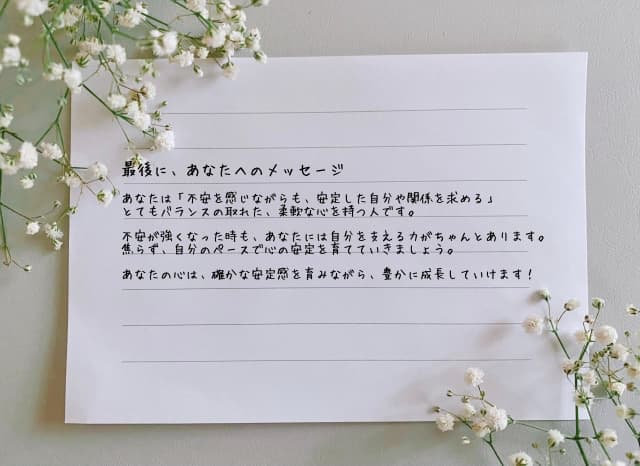 最後に、あなたへのメッセージ
あなたは「不安を感じながらも、安定した自分や関係を求める」
とてもバランスの取れた、柔軟な心を持つ人です。
不安が強くなった時も、あなたには自分を支える力がちゃんとあります。
焦らず、自分のペースで心の安定を育てていきましょう。
あなたの心は、確かな安定感を育みながら、豊かに成長していけます!